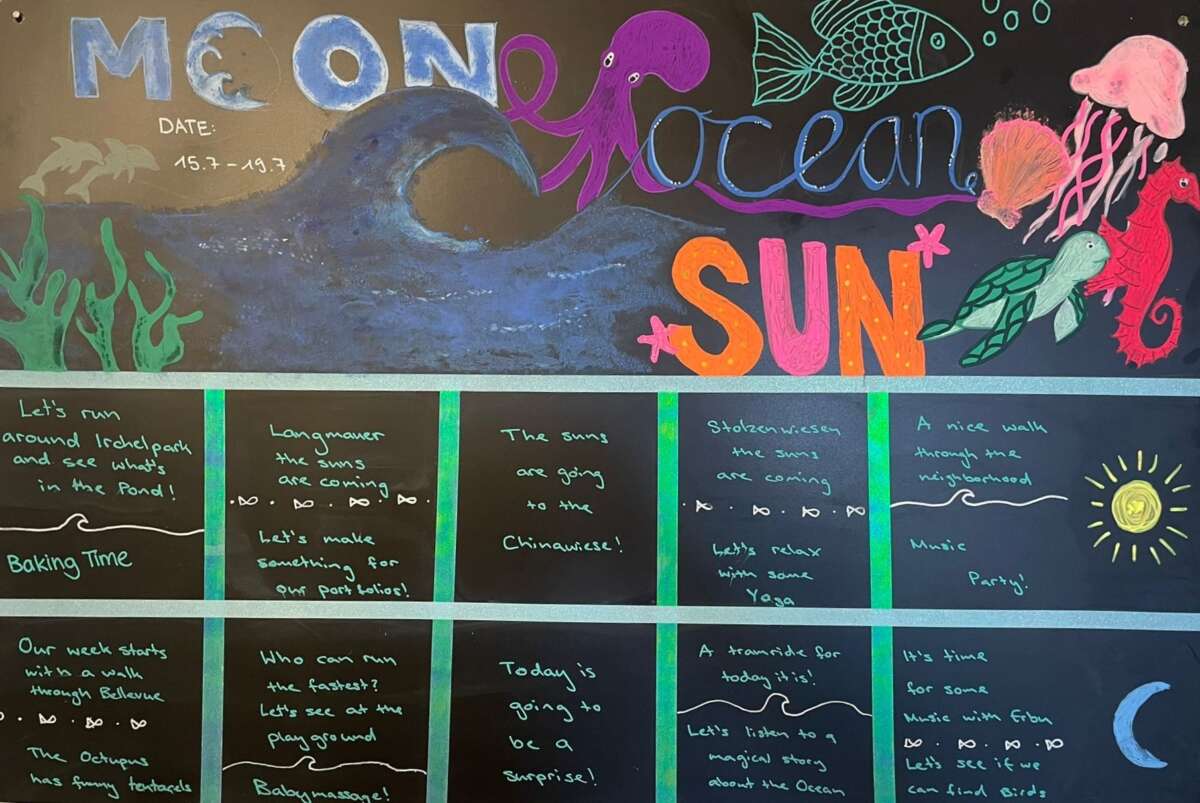 MOON
DATE:
15.7-19.7
ocean
SUN
Let's run
around Irchelpark
and see what's
in the Pond!
Baking Time
Langmauer
the suns
are coming
Let's make
something for
our portfolios!
The suns
are going
to the
Chinawiese!
Stolzenwiesen
the suns
are coming
Let's relax
with some
Yoga
A nice walk
through the
neighborhood
Music
Party!
Our week starts
with a walk
through Bellevue
The Octupus
has funny tentacels
Who can run
the fastest?
Let's see at the
playground
Babymassage!
Today is
going to
be a
surprise!
A tramride for
today it is!
Let's listen to a
magical story
about the Ocean
It's time
for some
Music with
Let's see if we
can find Birds